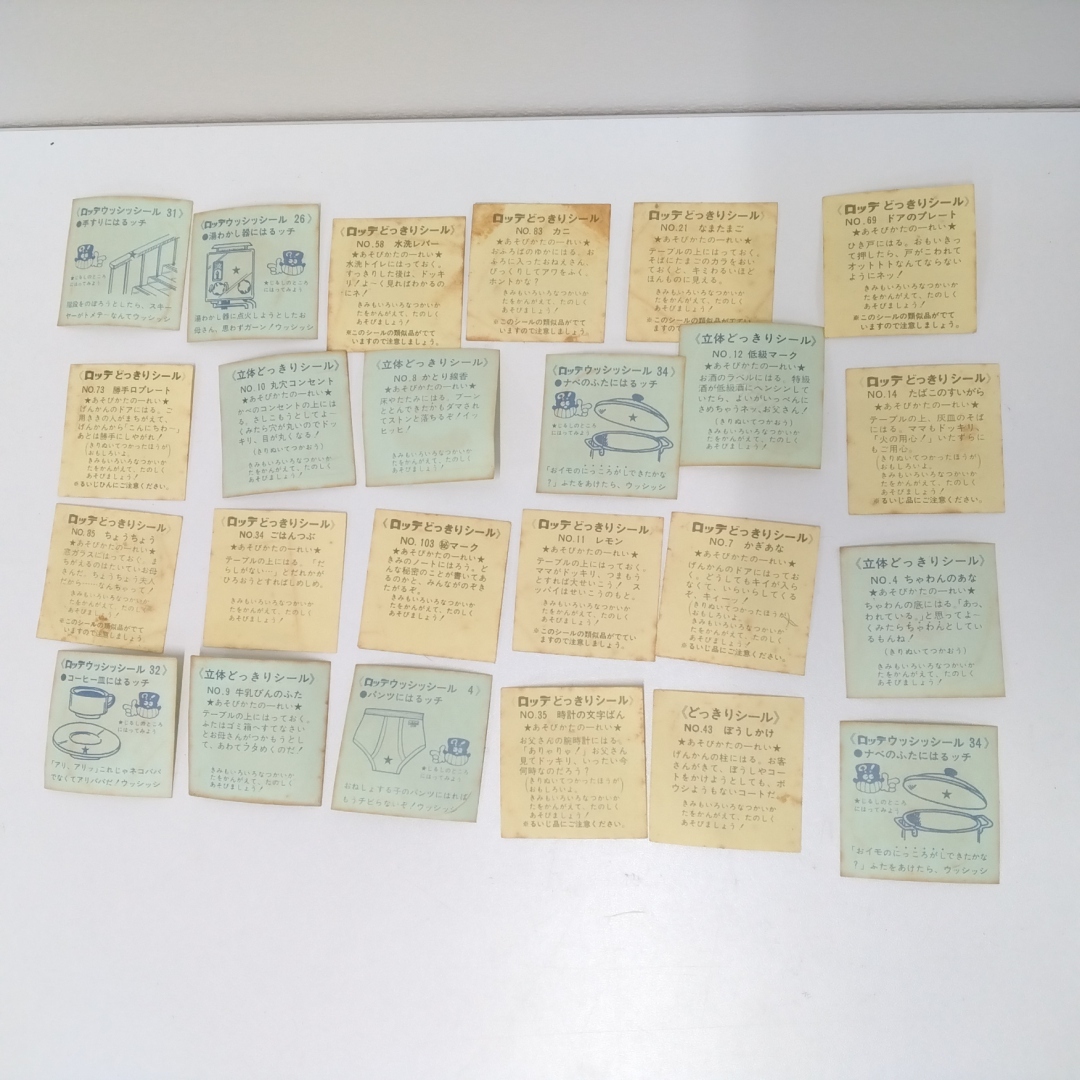 《ロッテウッシッシール 31》
●手すりにはるッチ
★じるしのところ
にはってみよう
階段をのぼろうとしたら、スキー
ヤーがトメテーなんてウッシッシ
《ロッテウッシッシール 26》
●湯わかし器にはるッチ
★じるしのところ
にはってみよう
湯わかし器に点火しようとしたお
母さん、思わずガーン！ウッシッシ
《ロッテどっきりシール》
NO.58 水洗レバー
★あそびかたの一れい★
水洗トイレにはっておく。
すっきりした後は、ドッキ
リ！よーく見ればわかるの
にネ！
きみもいろいろなつかいか
たをかんがえて、たのしく
あそびましょう！
※このシールの類似品がでて
いますので注意しましょう。
《ロッテどっきりシール》
NO.83 カニ
★あそびかたの一れい★
おふろばのゆかにはる。お
ふろに入ったおねえさん、
びっくりしてアワをふく、
ホントかな？
きみもいろいろなつかいか
たをかんがえて、たのしく
あそびましょう！
※このシールの類似品がでて
いますので注意しましょう。
《ロッテどっきりシール》
NO.21 なまたまご
★あそびかたの一れい★
テーブルの上にはっておく。
そばにたまごのカラをおい
ておくと、キミわるいほど
ほんものに見える。
きみもいろいろなつかいか
たをかんがえて、たのしく
あそびましょう！
※このシールの類似品が
いますので
《ロッテどっきりシール》
NO.69 ドアのプレート
★あそびかたの一れい★
ひき戸にはる。おもいきっ
て押したら、戸がこわれて
オットトトなんてならない
ようにネッ！
きみもいろいろなつかいか
たをかんがえて、たのしく
あそびましょう！
※このシールの類似品がでて
いますので注意しましょう。
《ロッテどっきりシール》
NO.73 勝手口プレート
★あそびかたの一れい★
げんかんのドアにはる。ご
用ききの人がまちがえて、
げんかんから「こんにちわ～」
あとは勝手にしやがれ！
(きりぬいてつかったほうが
おもしろいよ。)
きみもいろいろなつかいか
たをかんがえて、たのしく
あそびましょう！
※るいじひんにご注意ください。
《立体どっきりシール》
NO.10 丸穴コンセント
★あそびかたの一れい★
かべのコンセントの上には
る。さしこもうとしてよー
くみたら穴が丸いのでドッ
キリ、目が丸くなる！
(きりぬいてつかおう)
きみもいろいろなつかいか
たをかんがえて、たのしく
あそびましょう！
《立体どっきりシール》
NO.8 かとり線香
★あそびかたの一れい★
床やたたみにはる。ブーン
ととんできたカもダマされ
てストンと落ちるぞイッヒ
ヒッヒ！
きみもいろいろなつかいか
たをかんがえて、たのしく
あそびましょう！
《ロッテウッシッシール 34》
●ナベのふたにはるッチ
★じるしのところ
にはってみよう
「おイモのにっころがしできたかな
？」ふたをあけたら、ウッシッシ
《立体どっきりシール》
NO.12 低級マーク
★あそびかたの一れい★
お酒のラベルにはる。特級
酒が低級酒にヘンシンして
いたら、よいがいっぺんに
さめちゃうネッ、お父さん！
(きりぬいてつかおう)
きみもいろいろなつかいか
たをかんがえて、たのしく
あそびましょう！
《ロッテどっきりシール》
NO.14 たばこのすいがら
★あそびかたの一れい★
テーブルの上、灰皿のそば
にはる。ママもドッキリ。
「火の用心！」いたずらに
もご用心。
(きりぬいてつかったほうが
おもしろいよ。)
きみもいろいろなつかいか
たをかんがえて、たのしく
あそびましょう！
※るいじ品にご注意ください。
《ロッテどっきりシール》
NO.85 ちょうちょう
★あそびかたの一れい★
窓ガラスにはっておく。ま
ちがえるのはたいていお母
さんだ。ちょうちょう夫人
だから……なんちゃって！
きみもいろいろなつかいか
たをかんがえて、たのしく
あそびましょう！
※このシールの類似品がでて
いますので注意しましょう。
《ロッテどっきりシール》
NO.34 ごはんつぶ
★あそびかたの一れい★
テーブルの上にはる。「だ
らしがない―」とだれかが
ひろおうとすればしめしめ。
きみもいろいろなつかいか
たをかんがえて、たのしく
あそびましょう！
《ロッテどっきりシール》
NO.103 ㊙マーク
★あそびかたの一れい★
きみのノートにはろう。ど
んな秘密のことが書いてあ
るのかと、みんながのぞき
たがるぞ。
きみもいろいろなつかいか
たをかんがえて、たのしく
あそびましょう！
《ロッテどっきりシール》
NO.11 レモン
★あそびかたの一れい★
テーブルの上にはっておく。
ママがドッキリ、つまもう
とすれば大せいこう！ ス
ッパイはせいこうのもと。
きみもいろいろなつかいか
たをかんがえて、たのしく
あそびましょう！
※このシールの類似品がでてい
ますので注意しましょう。
《ロッテどっきりシール》
NO.7 かぎあな
★あそびかたの一れい★
げんかんのドアにはってお
く。どうしてもキイが入ら
なくて、いらいらしてくる
ぞ、キイーッ！
(きりぬいてつかったほうが
おもしろいよ。)
きみもいろいろなつかいか
たをかんがえて、たのしく
あそびましょう！
※るいじ品にご注意ください。
《立体どっきりシール》
NO.4 ちゃわんのあな
★あそびかたの一れい★
ちゃわんの底にはる。「あっ、
われている。」と思ってよー
くみたらちゃわんとしてい
るもんね！
(きりぬいてつかおう)
きみもいろいろなつかいか
たをかんがえて、たのしく
あそびましょう！
《ロッテウッシッシール 32》
●コーヒー皿にはるッチ
★じるしのところ
にはってみよう
「アリ、アリッ」これじゃネコババ
でなくてアリババだ！ウッシッシ
《立体どっきりシール》
NO.9 牛乳びんのふた
★あそびかたの一れい★
テーブルの上にはっておく。
ふたはゴミ箱へすてなさい
とお母さんがつかもうとし
て、あわてフタめくのだ！
きみもいろいろなつかいか
たをかんがえて、たのしく
あそびましょう！
《ロッテウッシッシール 4》
●パンツにはるッチ
★じるしのところ
にはってみよう
おねしょする子のパンツにはれば
もうチビらないぞ！ウッシッシ
《ロッテどっきりシール》
NO.35 時計の文字ばん
★あそびかたの一れい★
お父さんの腕時計にはる。
「ありゃりゃ！」お父さん
見てドッキリ、いったい今
何時なのだろう？
(きりぬいてつかったほうが
おもしろいよ。)
きみもいろいろなつかいか
たをかんがえて、たのしく
あそびましょう！
※るいじ品にご注意ください。
《どっきりシール》
NO.43 ぼうしかけ
★あそびかたの一れい★
げんかんの柱にはる。お客
さんがきて、ぼうしやコー
トをかけようとしても、ボ
ウシようもないコートだ。
きみもいろいろなつかいか
たをかんがえて、たのしく
あそびましょう！
《ロッテウッシッシール 34》
●ナベのふたにはるッチ
★じるしのところ
にはってみよう
「おイモのにっころがしできたかな
？」ふたをあけたら、ウッシッシ